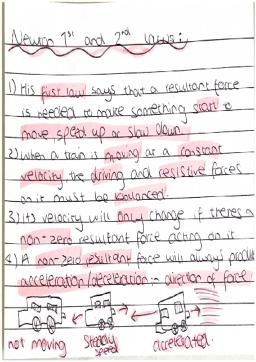 Newton 1st and 2nd laws:
1) His first law says that a resultant force
is needed to make something start to
move, speed up or slow down.
2) when a train is moving at a constant
velocity, the driving and resistive forces
on it must be balanced.
3) Its velocity will only change if theres a
non-zero resultant force acting on it
4) A non-zero resultant force will always produce
acceleration/deceleration in direction of force
not moving steady speed accelerated